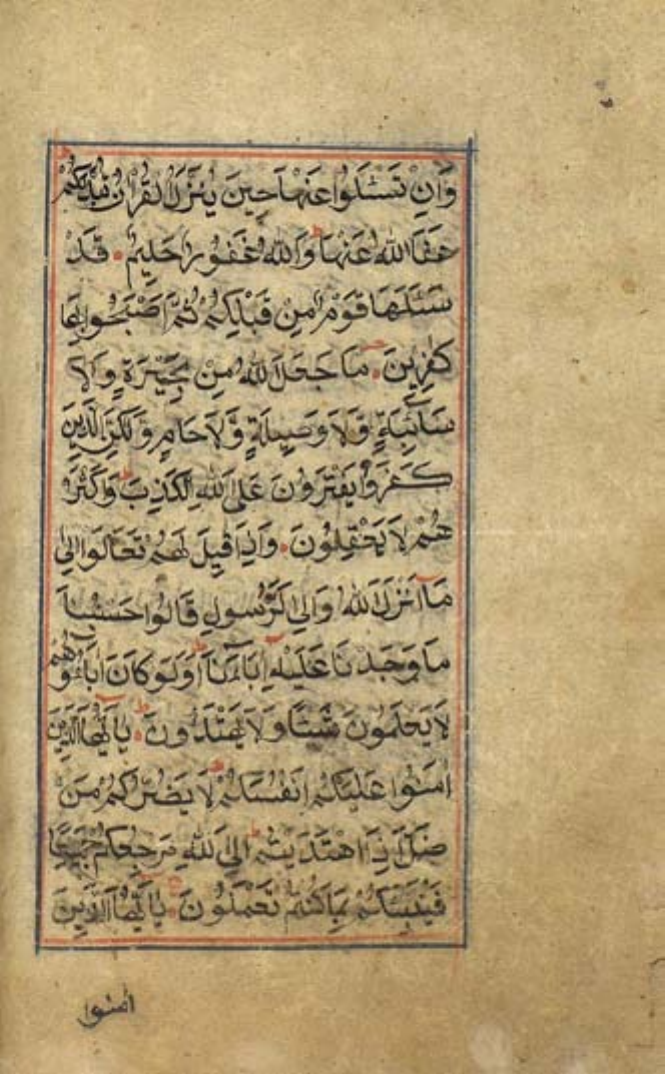 وَاِنْ تَسْئَلُوا عَنْهَا حِينَ يُنَزَّلُ الْقُرْاٰنُ تُبْدَلَكُمْ
عَفَا اللّٰهُ عَنْهَا وَاللّٰهُ غَفُورٌ حَلِيمٌ ۝ قَدْ
سَئَلَهَا قَوْمٌ مِنْ قَبْلِكُمْ ثُمَّ اَصْبَحُوا بِهَا
كٰفِرِينَ ۝ مَا جَعَلَ اللّٰهُ مِنْ بَحِيْرَةٍ وَلَا
سَآئِبَةٍ وَّلَا وَصِيلَةٍ وَّلَا حَامٍ وَّلٰكِنَّ الَّذِينَ
كَفَرُوا يَفْتَرُونَ عَلَى اللّٰهِ الْكَذِبَ ط وَاَكْثَرُ
هُمْ لَا يَعْقِلُونَ ۝ وَاِذَا قِيلَ لَهُمْ تَعَالَوْا اِلٰى
مَآ اَنْزَلَ اللّٰهُ وَاِلَى الرَّسُولِ قَالُوا حَسْبُنَا
مَا وَجَدْنَا عَلَيْهِ اٰبَآءَنَا ط اَوَلَوْ كَانَ اٰبَاؤُهُمْ
لَا يَعْلَمُونَ شَيْئًا وَلَا يَهْتَدُونَ ۝ يَآ اَيُّهَا الَّذِينَ
اٰمَنُوا عَلَيْكُمْ اَنْفُسَكُمْ لَا يَضُرُّكُمْ مَنْ
ضَلَّ اِذَا اهْتَدَيْتُمْ ط اِلَى اللّٰهِ مَرْجِعُكُمْ جَمِيعًا
فَيُنَبِّئُكُمْ بِمَا كُنْتُمْ تَعْمَلُونَ ۝ يَآ اَيُّهَا الَّذِينَ
اٰمنوا